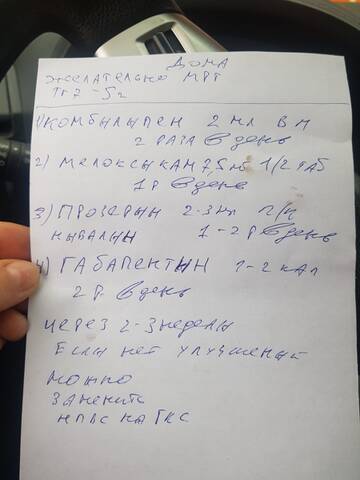 ДОМА
ЖЕЛАТЕЛЬНО МРТ
Th7 - S1
1) КОМБИЛЫПЕН 2 мл В М
2 РАЗА В день
2) МЕЛОКСЫКАМ 7,5 мг 1/2 таб
1 р В день
3) ПРОЗЕРЫН 2-3 мл П/К
НЫВАЛЫН 1-2 р В день
4) ГАБАПЕНТЫН 1-2 кап
2 р. В день
ЧЕРЕЗ 2-3 недели
Если нет улучшений
можно
Заменить
НПВС на ГКС